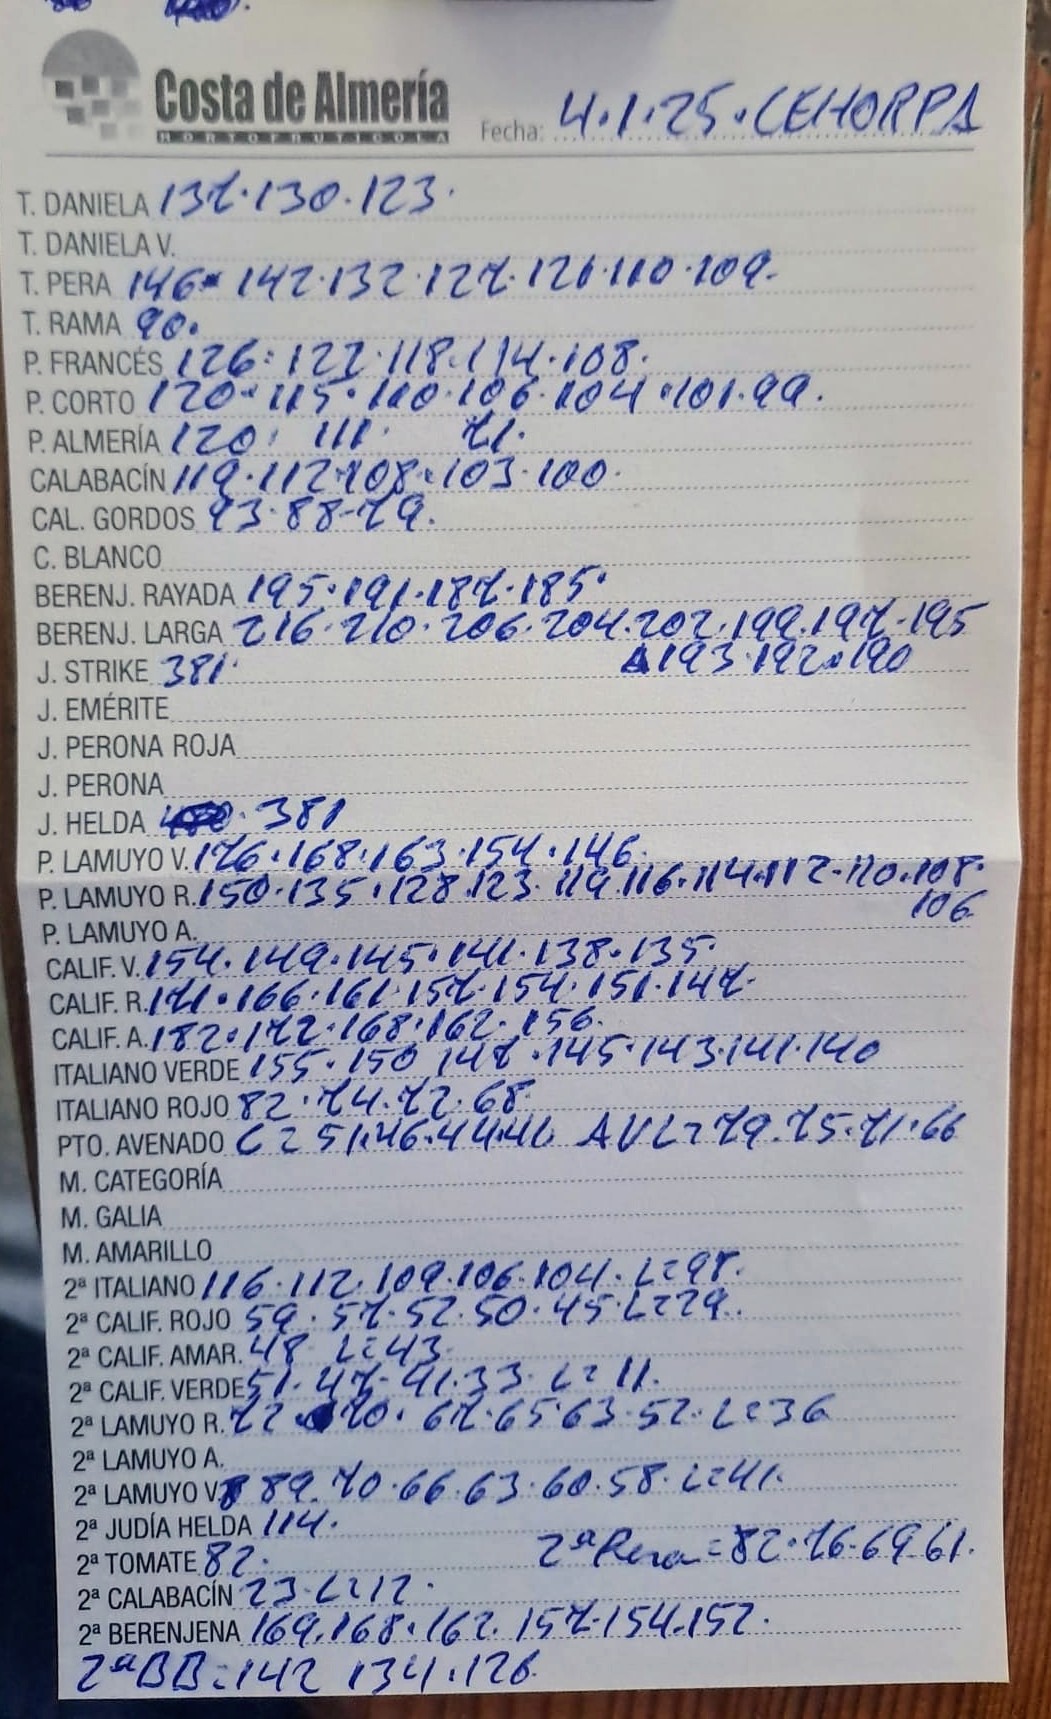 Costa de Almería
HORTOFRUTICOLA
Fecha: 4.1.25. CEHORPA
T. DANIELA 137.130.123.
T. DANIELA V.
T. PERA 146. 142.132.127.121.110.109.
T. RAMA 90.
P. FRANCÉS 126.122.118.114.108.
P. CORTO 120.115.110.106.104.101.99.
P. ALMERÍA 120. 111. 71.
CALABACÍN 119.112.108.103.100.
CAL. GORDOS 93.88.79.
C. BLANCO
BERENJ. RAYADA 195.191.187.185.
BERENJ. LARGA 216.210.206.204.202.199.197.195
193.192.190
J. STRIKE 381.
J. EMÉRITE
J. PERONA ROJA
J. PERONA
J. HELDA 381
P. LAMUYO V. 176.168.163.154.146.
P. LAMUYO R. 150.135.128.123.119.116.114.112.110.108.
106
P. LAMUYO A.
CALIF. V. 154.149.145.141.138.135.
CALIF. R. 171.166.161.157.154.151.147.
CALIF. A. 182.172.168.162.156.
ITALIANO VERDE 155.150 147.145.143.141.140
ITALIANO ROJO 82.74.72.68.
PTO. AVENADO C=51.46.44.41. AVL=79.75.71.66
M. CATEGORÍA
M. GALIA
M. AMARILLO
2ª ITALIANO 116.112.109.106.104. L=98.
2ª CALIF. ROJO 59.57.52.50.45. L=29.
2ª CALIF. AMAR. 48 L=43.
2ª CALIF. VERDE 51.47.41.33. L=11.
2ª LAMUYO R. 72. 70. 67.65.63.52. L=36
2ª LAMUYO A.
2ª LAMUYO V. 89.70.66.63.60.58. L=41.
2ª JUDÍA HELDA 114.
2ª TOMATE 82. 2ª Pera=82.76.69.61.
2ª CALABACÍN 23. L=12.
2ª BERENJENA 169.168.162.157.154.152.
2ª BB=142 134.126.